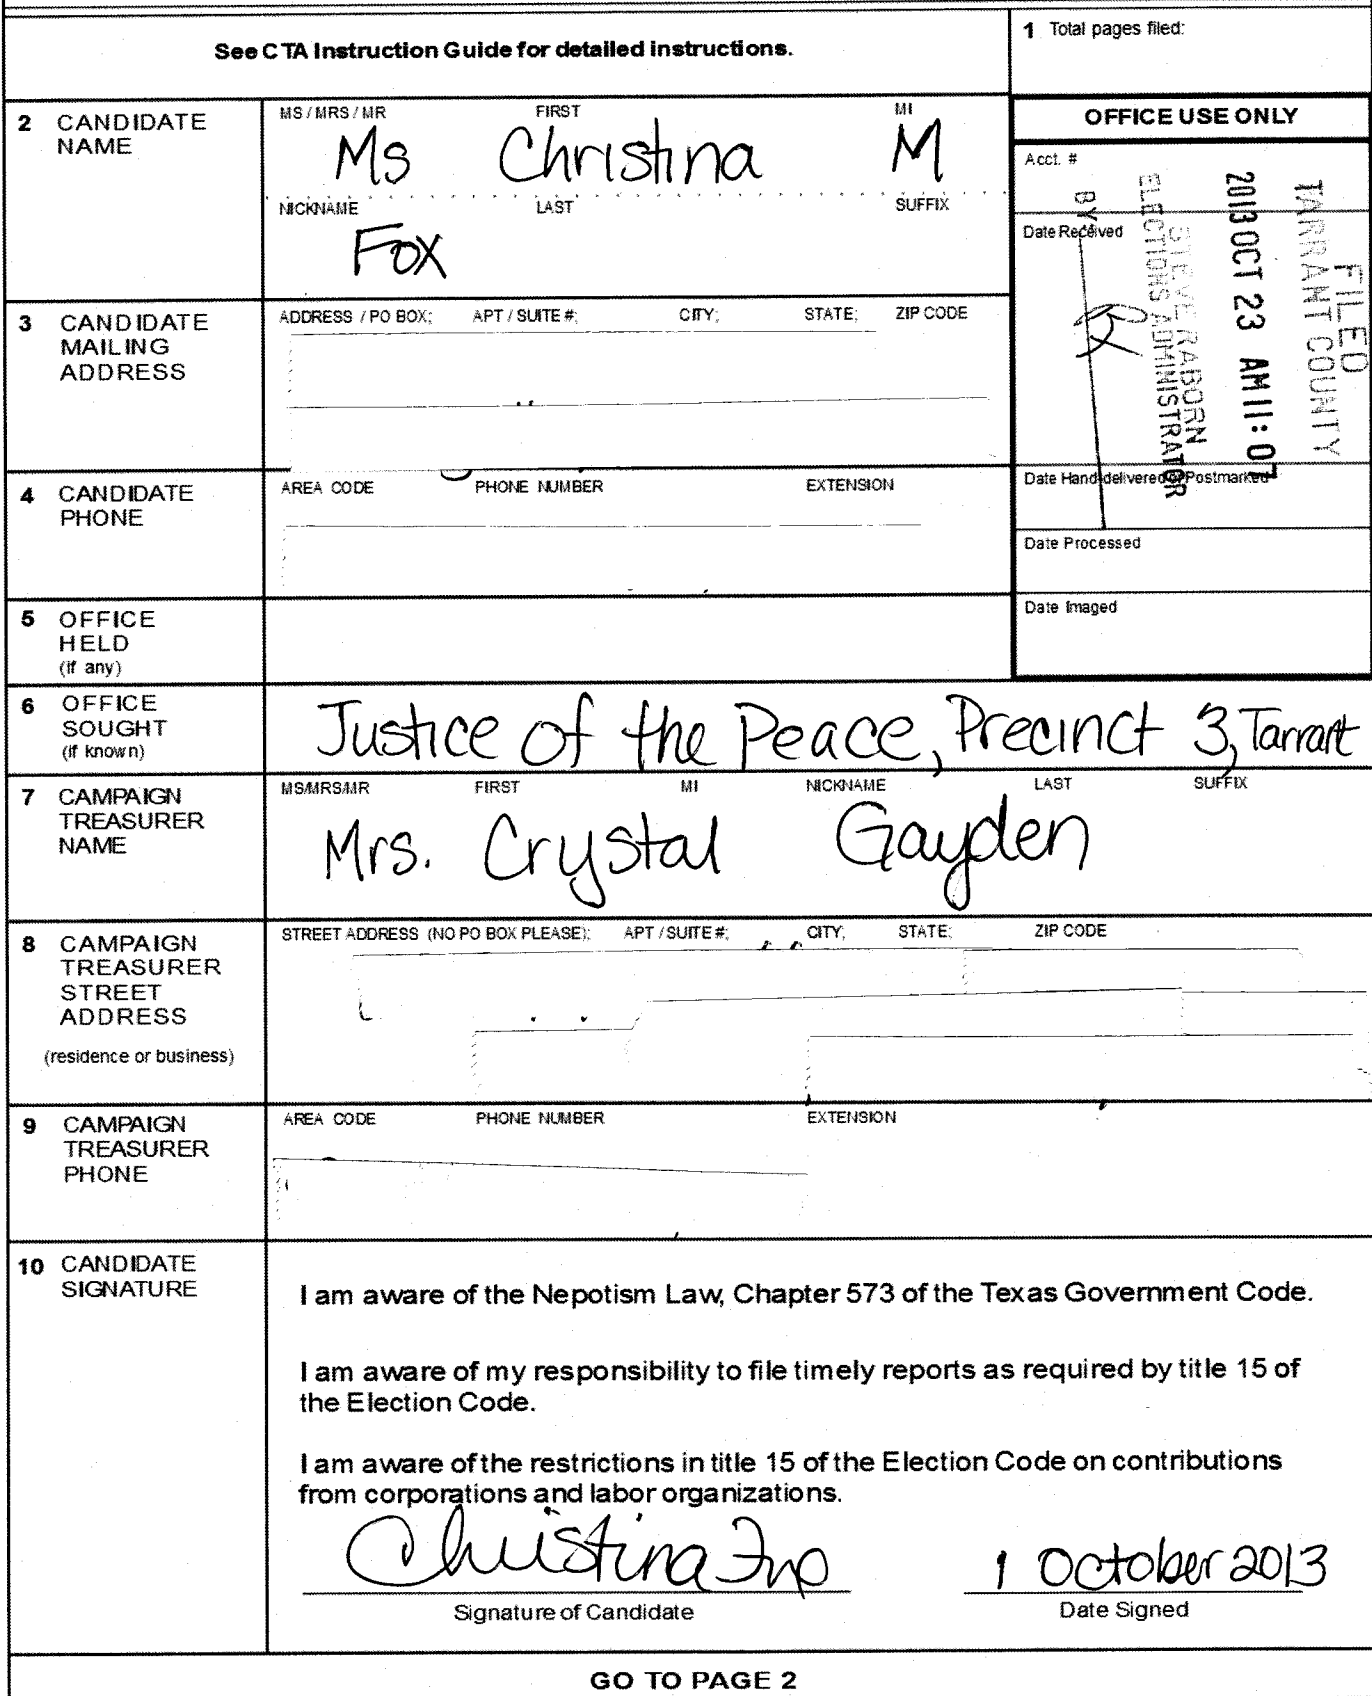 See CTA Instruction Guide for detailed instructions.
1 Total pages filed:
2 CANDIDATE NAME
MS / MRS / MR FIRST MI
Ms Christina M
NICKNAME LAST SUFFIX
Fox
OFFICE USE ONLY
Acct. #
Date Received
FILED
TARRANT COUNTY
2013 OCT 23 AM 11: 07
STEVE RABORN
ELECTIONS ADMINISTRATOR
BY
Date Hand-delivered or Postmarked
Date Processed
Date Imaged
3 CANDIDATE MAILING ADDRESS
ADDRESS / PO BOX; APT / SUITE #; CITY; STATE; ZIP CODE
4 CANDIDATE PHONE
AREA CODE PHONE NUMBER EXTENSION
5 OFFICE HELD (if any)
6 OFFICE SOUGHT (if known)
Justice of the Peace, Precinct 3, Tarrant
7 CAMPAIGN TREASURER NAME
MS/MRS/MR FIRST MI NICKNAME LAST SUFFIX
Mrs. Crystal Gayden
8 CAMPAIGN TREASURER STREET ADDRESS
(residence or business)
STREET ADDRESS (NO PO BOX PLEASE); APT / SUITE #; CITY; STATE; ZIP CODE
9 CAMPAIGN TREASURER PHONE
AREA CODE PHONE NUMBER EXTENSION
10 CANDIDATE SIGNATURE
I am aware of the Nepotism Law, Chapter 573 of the Texas Government Code.
I am aware of my responsibility to file timely reports as required by title 15 of
the Election Code.
I am aware of the restrictions in title 15 of the Election Code on contributions
from corporations and labor organizations.
Christina Fox
1 October 2013
Signature of Candidate
Date Signed
GO TO PAGE 2